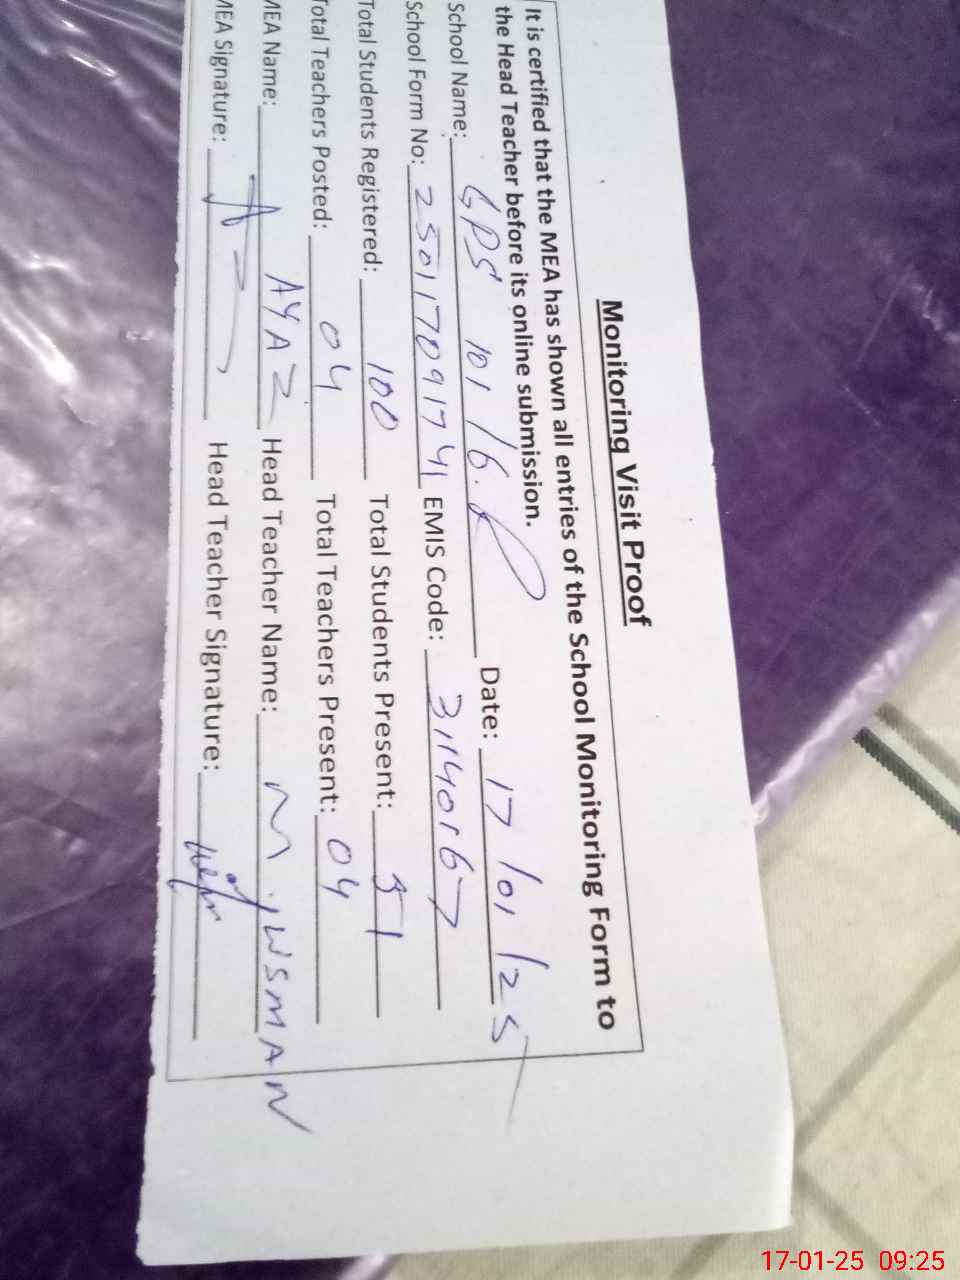 Monitoring Visit Proof
It is certified that the MEA has shown all entries of the School Monitoring Form to
the Head Teacher before its online submission.
School Name: GPS 101/6.R Date: 17/01/25
School Form No: 250117091741 EMIS Code: 31140167
Total Students Registered: 100 Total Students Present: 51
Total Teachers Posted: 04 Total Teachers Present: 04
MEA Name: AYAZ Head Teacher Name: M.
MEA Signature: Head Teacher Signature:
17-01-25 09:25